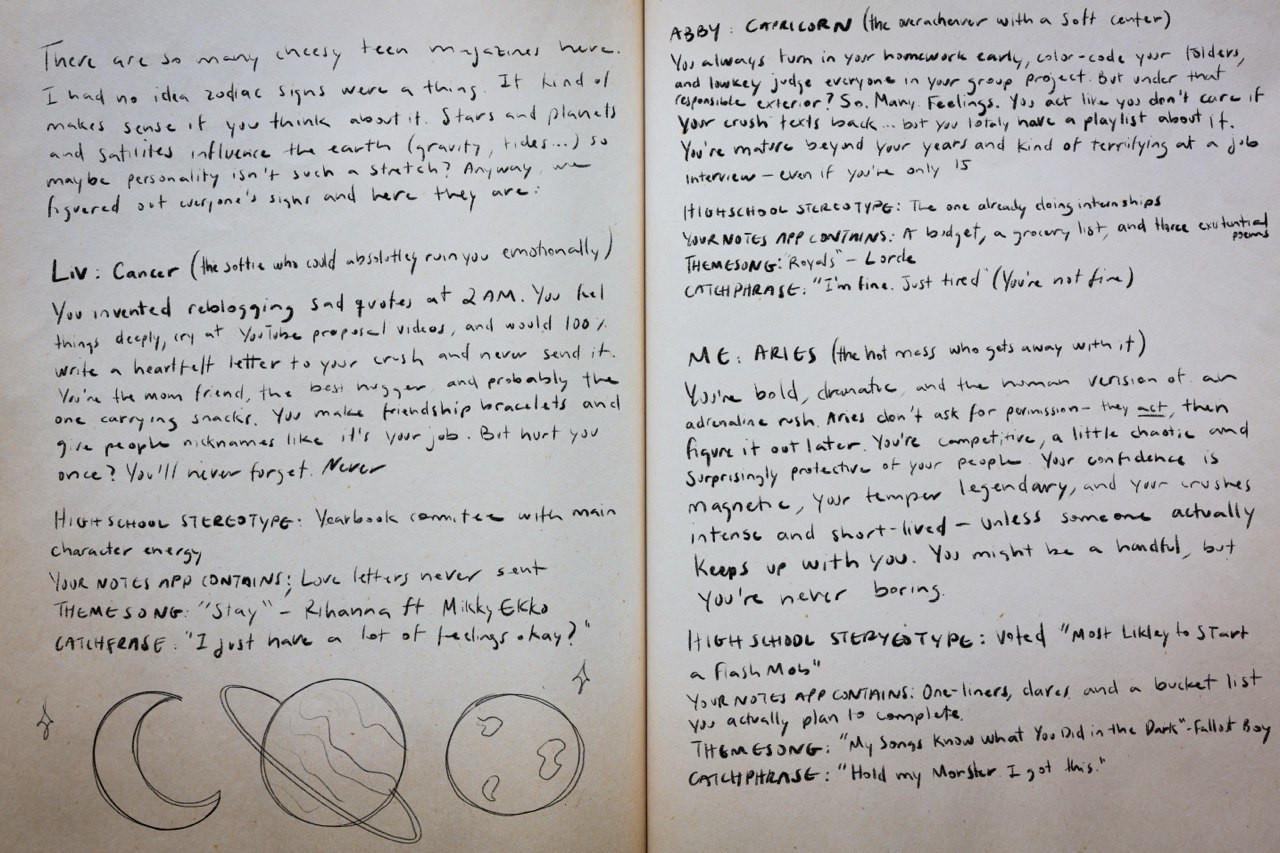 There are so many cheesy teen magazines here.
I had no idea zodiac signs were a thing. It kind of
makes sense if you think about it. Stars and planets
and satilites influence the earth (gravity, tides...) so
maybe personality isn't such a stretch? Anyway, we
figuered out everyone's signs and here they are:
Liv: Cancer (the softie who could absolutley ruin you emotionally)
You invented reblogging sad quotes at 2 AM. You feel
things deeply, cry at YouTube proposal videos, and would 100%
write a heartfelt letter to your crush and never send it.
You're the mom friend, the best hugger, and probably the
one carrying snacks. You make friendship bracelets and
give people nicknames like it's your job. But hurt you
once? You'll never forget. Never
HIGHSCHOOL STEREOTYPE: Yearbook commitee with main
character energy
YOUR NOTES APP CONTAINS: Love letters never sent
THEMESONG: "Stay" - Rihanna ft Mikky Ekko
CATCHFRASE: "I just have a lot of feelings okay?"
ABBY: CAPRICORN (the overacheiver with a soft center)
You always turn in your homework early, color-code your folders,
and lowkey judge everyone in your group project. But under that
responsible exterior? So. Many. Feelings. You act like you don't care if
your crush texts back... but you totaly have a playlist about it.
You're mature beyond your years and kind of terrifying at a job
interview - even if you're only 15
HIGHSCHOOL STEREOTYPE: The one already doing internships
YOUR NOTES APP CONTAINS: A budget, a grocery list, and three existential
poems
THEMESONG: "Royals" - Lorde
CATCHPHRASE: "I'm fine. Just tired" (You're not fine)
ME: ARIES (the hot mess who gets away with it)
You're bold, dramatic, and the human version of an
adrenaline rush. Aries don't ask for permission - they act, then
figure it out later. You're competitive, a little chaotic and
surprisingly protective of your people. Your confidence is
magnetic, your temper legendary, and your crushes
intense and short-lived - unless someone actually
keeps up with you. You might be a handful, but
you're never boring.
HIGH SCHOOL STERYEOTYPE: Voted "Most Likley to Start
a Flash Mob"
YOUR NOTES APP CONTAINS: One-liners, dares and a bucket list
you actually plan to complete.
THEMESONG: "My Songs Know what You Did in the Dark" - Fallout Boy
CATCHPHRASE: "Hold my Monster I got this."